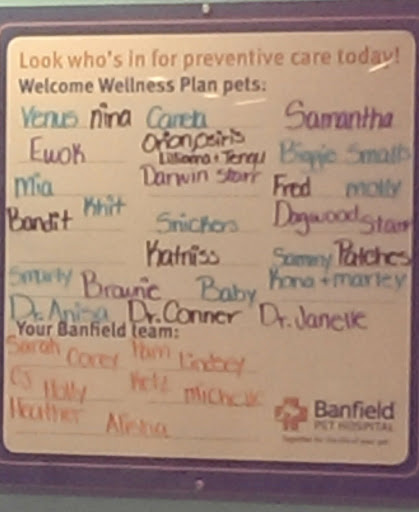 Look who's in for preventive care today!
Welcome Wellness Plan pets:
Venus nina Samantha
Orion osiris
Ewok + Tengu Biggie Smalls
Mia Darwin Starr Fred molly
Bandit Snickers Dogwood Starr
Katniss Sammy Patches
Smurty Brownie Baby Kona + marley
Dr. Anisa Dr. Conner Dr. Janelle
Your Banfield team:
Sarah Corey Pam Lindsey
CJ Holly michelle
Heather Alisha
Banfield
PET HOSPITAL